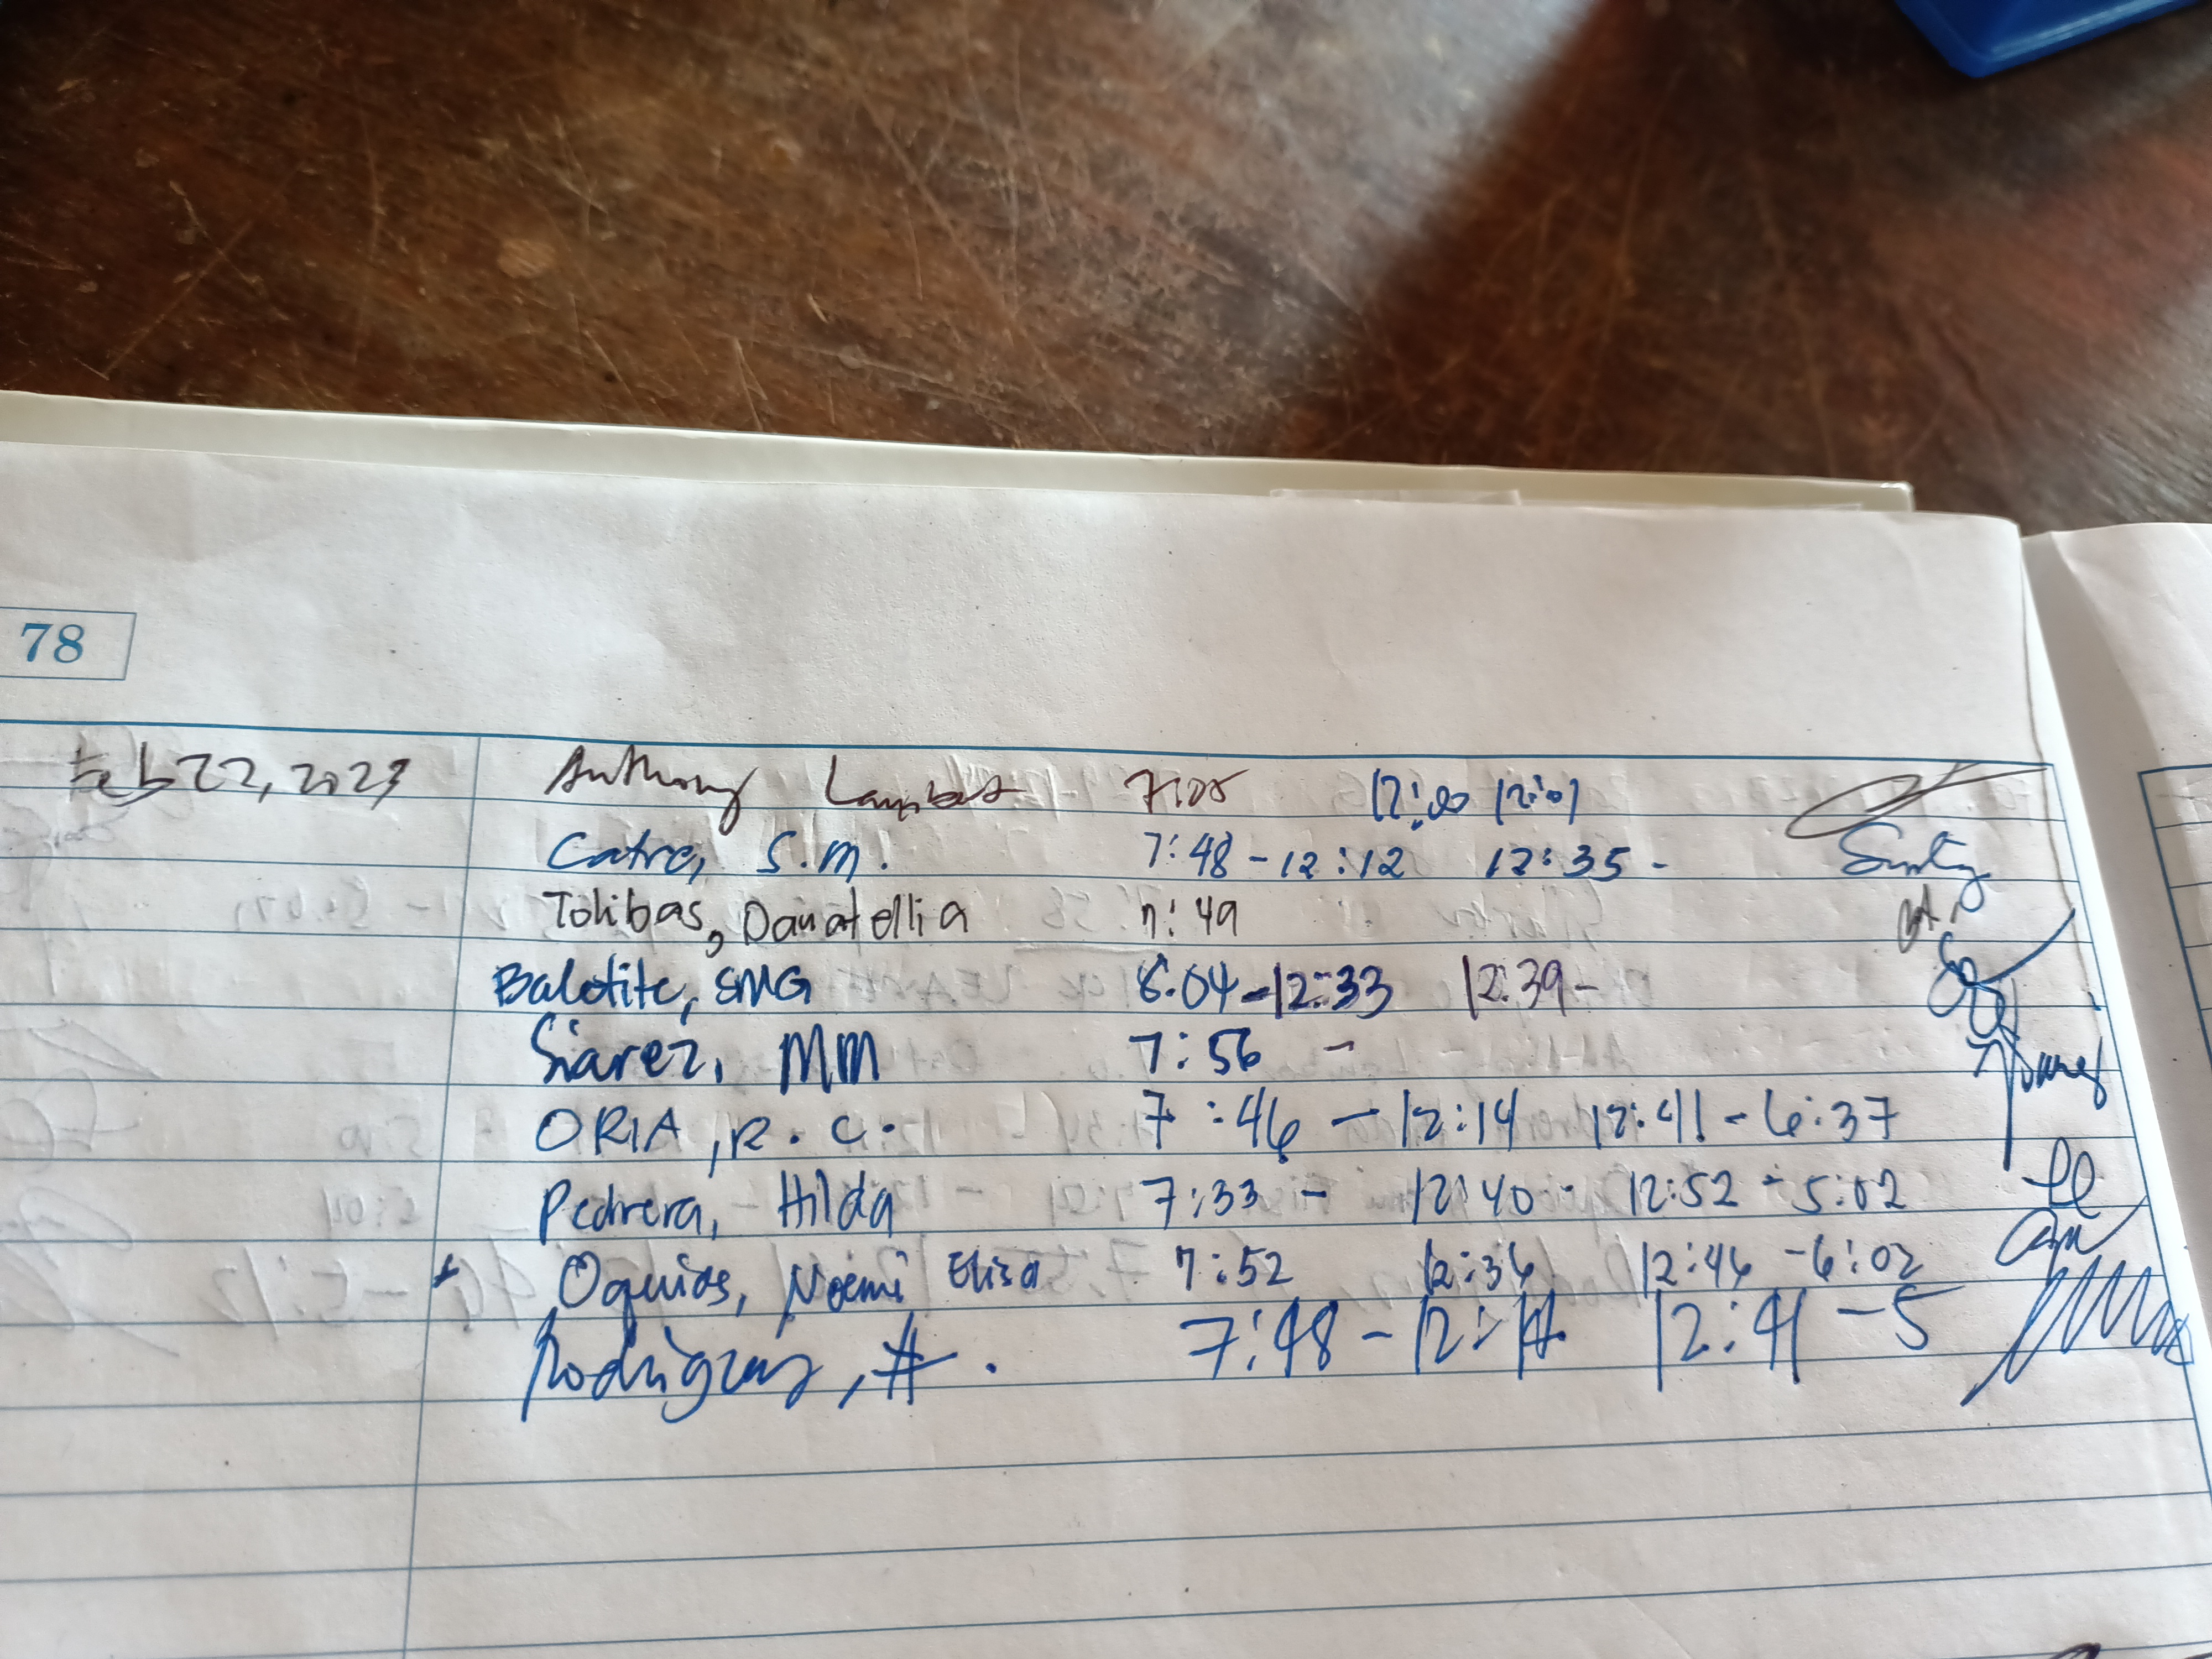 78
Feb 22, 2023 Anthony 7:05 12:00 12:01
Catre, S.M. 7:48 - 12:12 12:35 -
Tolibas, Danatellia 7:49
Balotite, SMG 8:04 - 12:33 12:39 -
Siarez, MM 7:56 -
ORIA, R.C. 7:46 - 12:14 12:41 - 6:37
Pedrera, Hilda 7:33 - 12:40 - 12:52 - 5:02
Oquias, Noemi Elisa 7:52 12:36 12:46 - 6:02
Rodriguez, H. 7:48 - 12:14 12:41 - 5